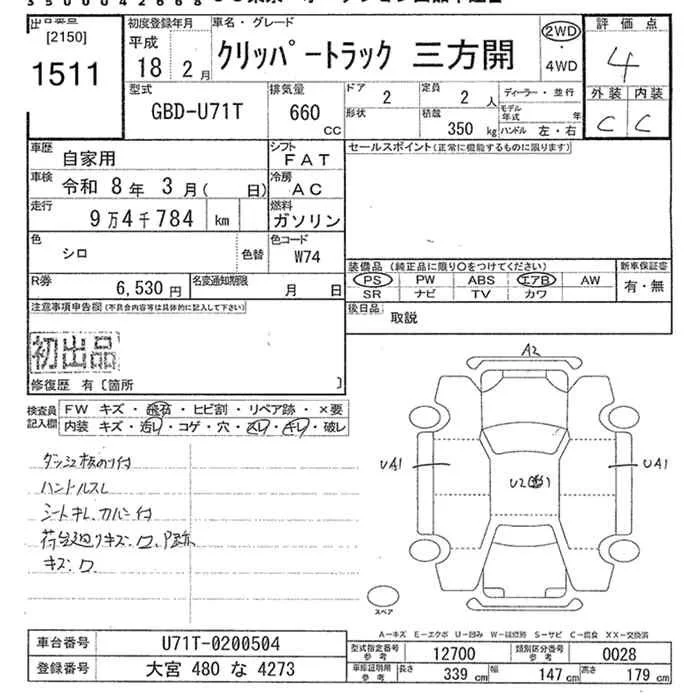 出品番号
[2150]
1511
初度登録年月
平成
18 2 月
車名・グレード
クリッパートラック 三方開
2WD
・
4WD
評価点
4
外装 内装
C C
型式
GBD-U71T
排気量
660
CC
ドア
2
形状
定員
2 人
積載
350 kg
ディーラー・並行
モデル
年式 年
ハンドル 左・右
車歴
自家用
シフト
FAT
車検
令和 8 年 3 月( 日)
冷房
AC
走行
9 万 4 千 784 km
燃料
ガソリン
色
シロ
色替
色コード
W74
R券
6,530 円
名変通知期限
月 日
セールスポイント(正常に機能するものに限ります)
装備品 (純正品に限り○をつけてください)
PS PW ABS エアB AW
SR ナビ TV カワ
新車保証書
有・無
後日品
取説
注意事項申告欄(不具合内容等は具体的に記入して下さい)
初出品
修復歴 有〔箇所 〕
検査員
記入欄
FW キズ・飛石・ヒビ割・リペア跡・×要
内装 キズ・汚レ・コゲ・穴・スレ・キレ・破レ
ダッシュ板のり付
ハンドルスレ
シートキレ、カバー付
キズ、ロ
A2
UA1
UA1
スペア
A-キズ E-エクボ U-凹み W-波修跡 S-サビ C-腐食 XX-交換済
車台番号
U71T-0200504
登録番号
大宮 480 な 4273
型式指定番号
参考
12700
類別区分番号
参考
0028
車庫証明用
参考
長さ 339 cm
幅 147 cm
高さ 179 cm